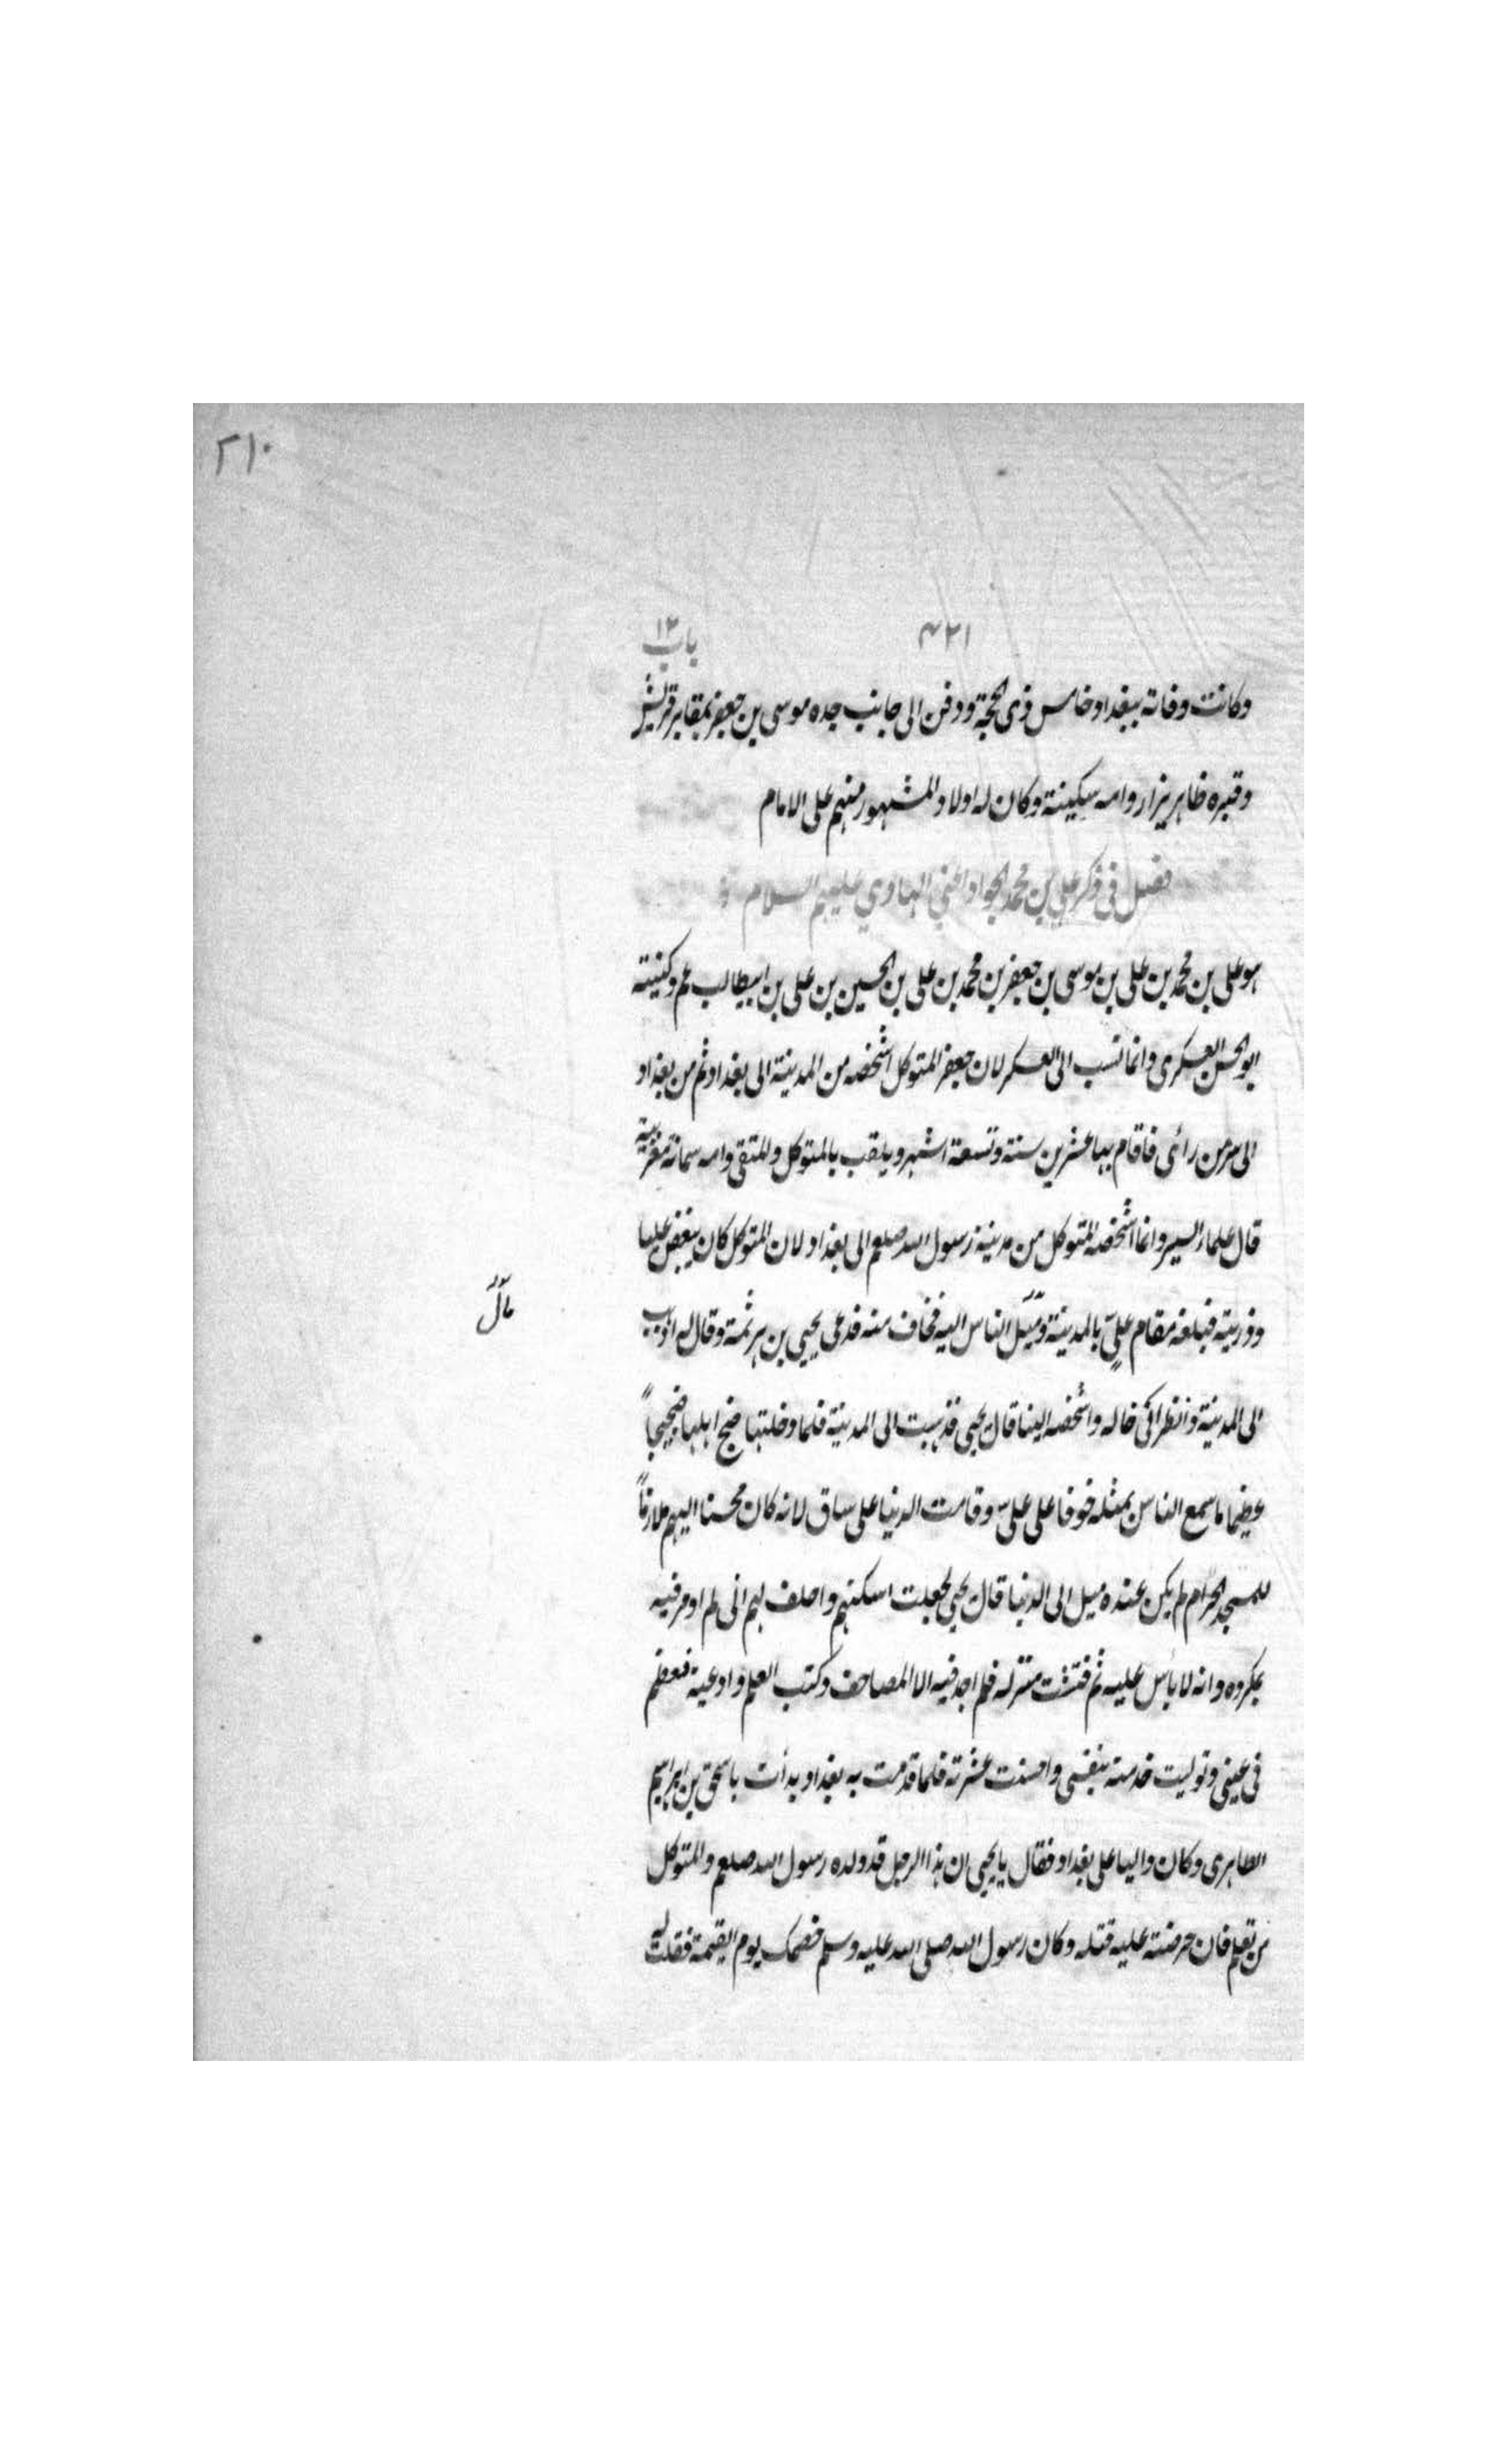 ٢١٠
٤٢١ باب ١٢
وكانت وفاته ببغداد خامس ذى الحجة ودفن الى جانب جده موسى بن جعفر بمقابر قريش
وقبره ظاهر يزار وامه سكينة وكان له اولاد المشهور منهم على الامام
فصل فى ذكر على بن محمد الجواد اعنى الهادي عليهم السلام
هو على بن محمد بن على بن موسى بن جعفر بن محمد بن على بن الحسين بن على بن ابيطالب عم وكنيته
ابو الحسن العسكرى وانما نسب الى العسكر لان جعفر المتوكل اشخصه من المدينة الى بغداد ثم من بغداد
الى سر من رأى فاقام بها عشرين سنة وتسعة اشهر ويلقب بالمتوكل والمتقى وامه سمانة مغربية
قال علماء السير وانما اشخصه المتوكل من مدينة رسول الله صلعم الى بغداد لان المتوكل كان يبغض عليا
وذريته فبلغه مقام على بالمدينة وميل الناس اليه فخاف منه فدعى يحيى بن هرثمة وقال له اذهب
مآل
الى المدينة وانظر فى حاله واشخصه الينا قال يحيى فذهبت الى المدينة فلما دخلتها ضج اهلها ضجيجاً
عظيما ما سمع الناس بمثله خوفا على على وقامت الدنيا على ساق لانه كان محسنا اليهم ملازماً
للمسجد الحرام لم يكن عنده ميل الى الدنيا قال يحيى فجعلت اسكنهم واحلف لهم انى لم اومر فيه
بمكروه وانه لا بأس عليه ثم فتشت منزله فلم اجد فيه الا المصاحف وكتب العلم وادعية فعظم
فى عينى وتوليت خدمته بنفسى واحسنت عشرته فلما قدمت به بغداد بدأت باسحق بن ابراهيم
الطاهرى وكان واليا على بغداد فقال يا يحيى ان هذا الرجل قد ولده رسول الله صلعم والمتوكل
من تعلم فان حرضته عليه قتله وكان رسول الله صلى الله عليه وسلم خصمك يوم القيمة فقلت له